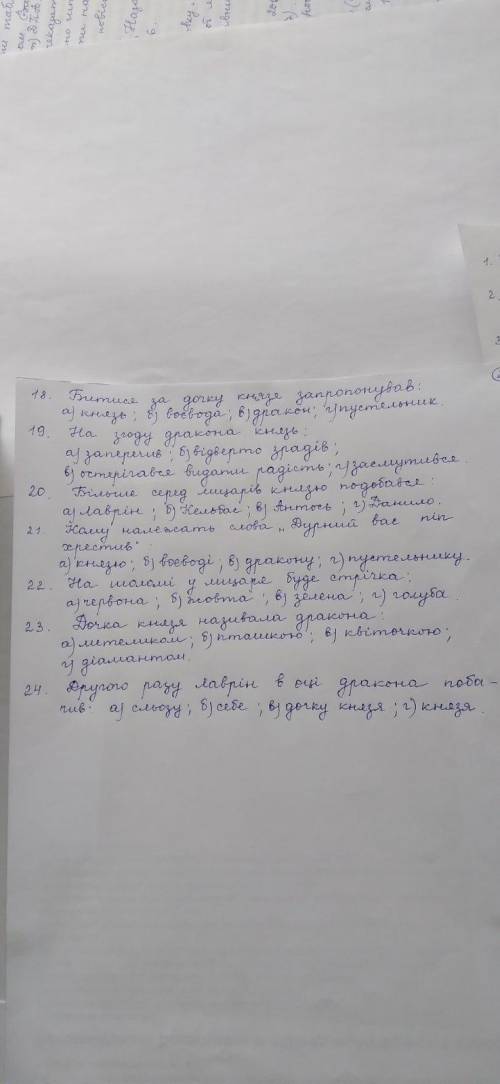 18. Битися за дочку князя запропонував:
а) князь; б) воєвода; в) дракон; г) пустельник.
19. На згоду дракона князь:
а) заперечив; б) відверто зрадів;
в) остерігався видати радість; г) засмутився.
20. Більше серед лицарів князю подобався:
а) Лаврін; б) Кельбас; в) Антось; г) Данило.
21. Кому належать слова „Дурний вас піп
хрестив":
а) князю; б) воєводі; в) дракону; г) пустельнику.
22. На шоломі у лицаря буде стрічка:
а) червона; б) жовта; в) зелена; г) голуба.
23. Дочка князя називала дракона:
а) метеликом; б) пташкою; в) квіточкою;
г) діамантом.
24. Другого разу Лаврін в оці дракона поба-
чив: а) сльозу; б) себе; в) дочку князя; г) князя.
1.
2.
3